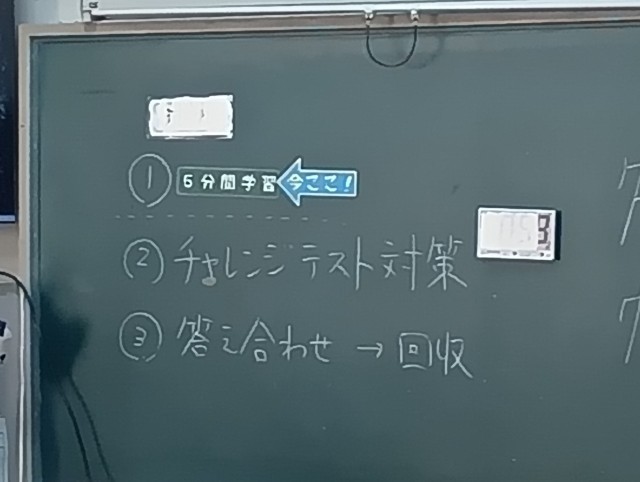 ① 5分間学習 今ここ!
② チャレンジテスト対策
③ 答え合わせ → 回収